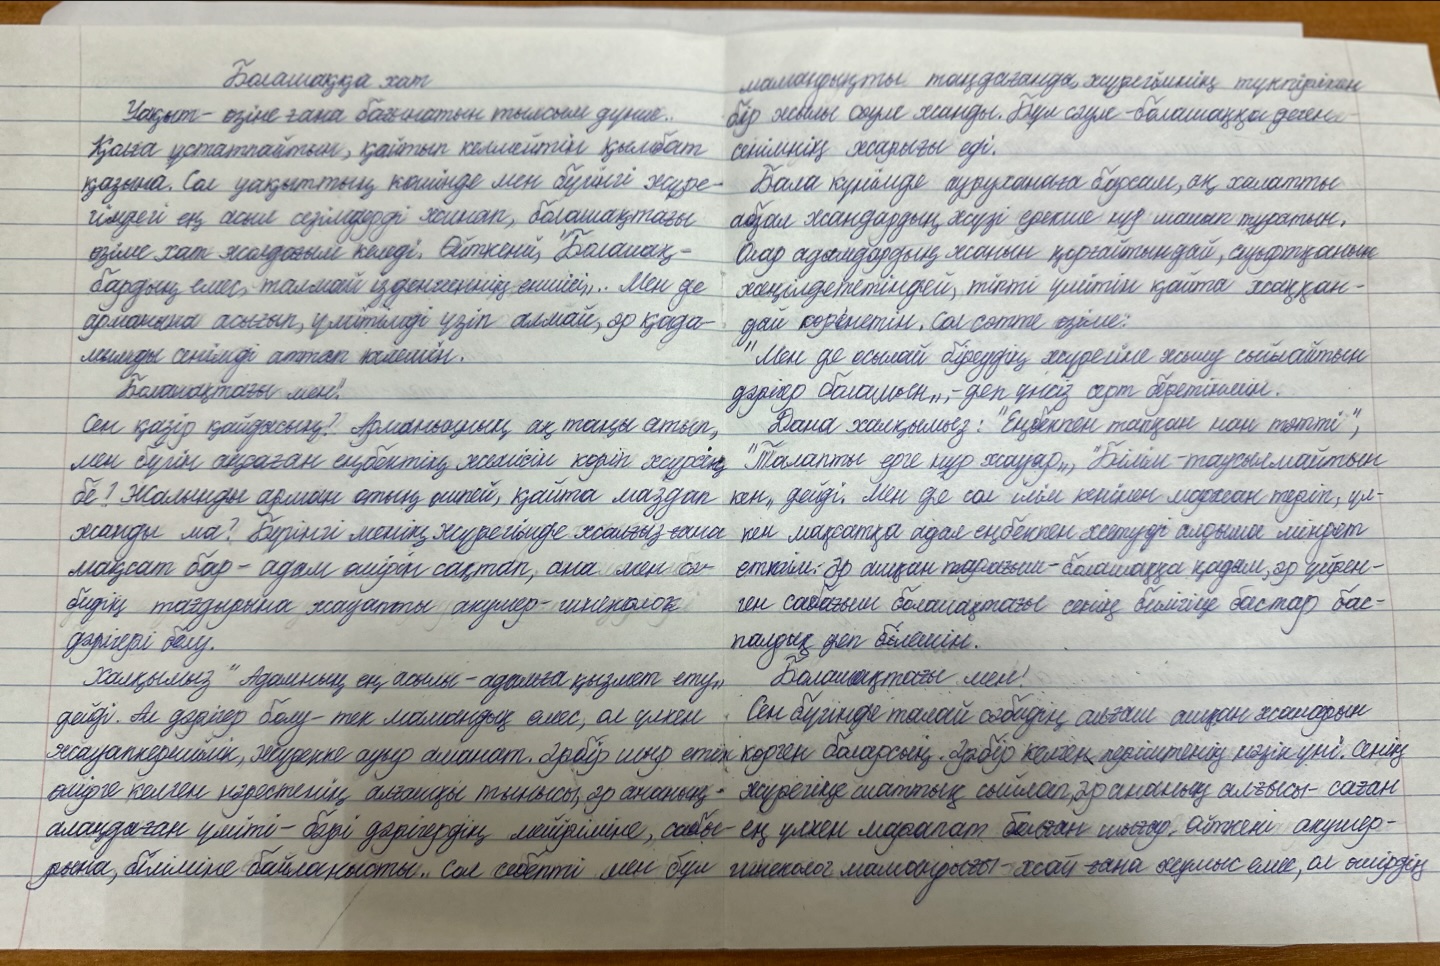 Болашаққа хат
Уақыт - өзіне ғана бағынатын тылсым дүние..
Қолға ұстатпайтын, қайтып келмейтін қымбат
қазына. Сол уақыттың көшінде мен бүгінгі жүре-
гімдегі ең асыл сезімдерді жинап, болашақтағы
өзіме хат жолдағым келеді. Өйткені, "Болашақ -
бардың емес, талмай ізденгеннің еншісі„.. Мен де
арманыма асығып, үмітімді үзіп алмай, әр қада-
мымды сенімді аттап келемін.
Болашақтағы мен!
Сен қазір қайдасың? Арманыңның ақ таңы атып,
мен бүгін аңсаған еңбектің жемісін көріп жүрсің
бе? Жалынды арман отың өшпей, қайта маздап
жанды ма? Бүгінгі менің жүрегімде жалғыз ғана
мақсат бар - адам өмірін сақтап, ана мен сә-
бидің тағдырына жауапты акушер-гинеколог
дәрігері болу.
Халқымыз "Адамның ең асылы - адамға қызмет ету„
дейді. Ал дәрігер болу - тек мамандық емес, ол үлкен
жауапкершілік, жүрекке ауыр аманат. Әрбір шыр етіп
өмірге келген нәрестенің алғашқы тынысы, әр ананың
алаңдаған үміті - бәрі дәрігердің мейіріміне, сабы-
рына, біліміне байланысты.. Сол себепті мен бұл
мамандықты таңдағанда, жүрегімнің түкпірінен
бір жылы сәуле жанды. Бұл сәуле - болашаққа деген
сенімнің жарығы еді.
Бала күнімде ауруханаға барсам, ақ халатты
абзал жандардың жүзі ерекше нұр шашып тұратын.
Олар адамдардың жанын қорғайтындай, ауыртқанын
жеңілдететіндей, тіпті үмітін қайта жаққан-
дай көрінетін. Сол сәтте өзіме:
"Мен де осылай біреудің жүрегіне жылу сыйлайтын
дәрігер боламын„, - деп үнсіз серт беретінмін.
Дана халқымыз: "Еңбекпен тапқан нан тәтті",
"Талапты ерге нұр жауар„, "Білім - таусылмайтын
кен„ дейді. Мен де сол ілім кенінен маржан теріп, үл-
кен мақсатқа адал еңбекпен жетуді алдыма міндет
еткенмін. Әр ашқан парағым - болашаққа қадам, әр үйрен-
ген сабағым болашақтағы сенің биігіңе бастар бас-
палдық деп білемін.
Болашақтағы мен!
Сен бүгінде талай сәбидің алғаш ашқан жанарын
көрген боларсың. Әрбір келген періштенің нәзік үні. Сенің
жүрегіңе шаттық сыйлап, әр ананың алғысы - саған
ең үлкен марапат болған шығар. Өйткені акушер-
гинеколог мамандығы - жай ғана жұмыс емес, ол өмірдің